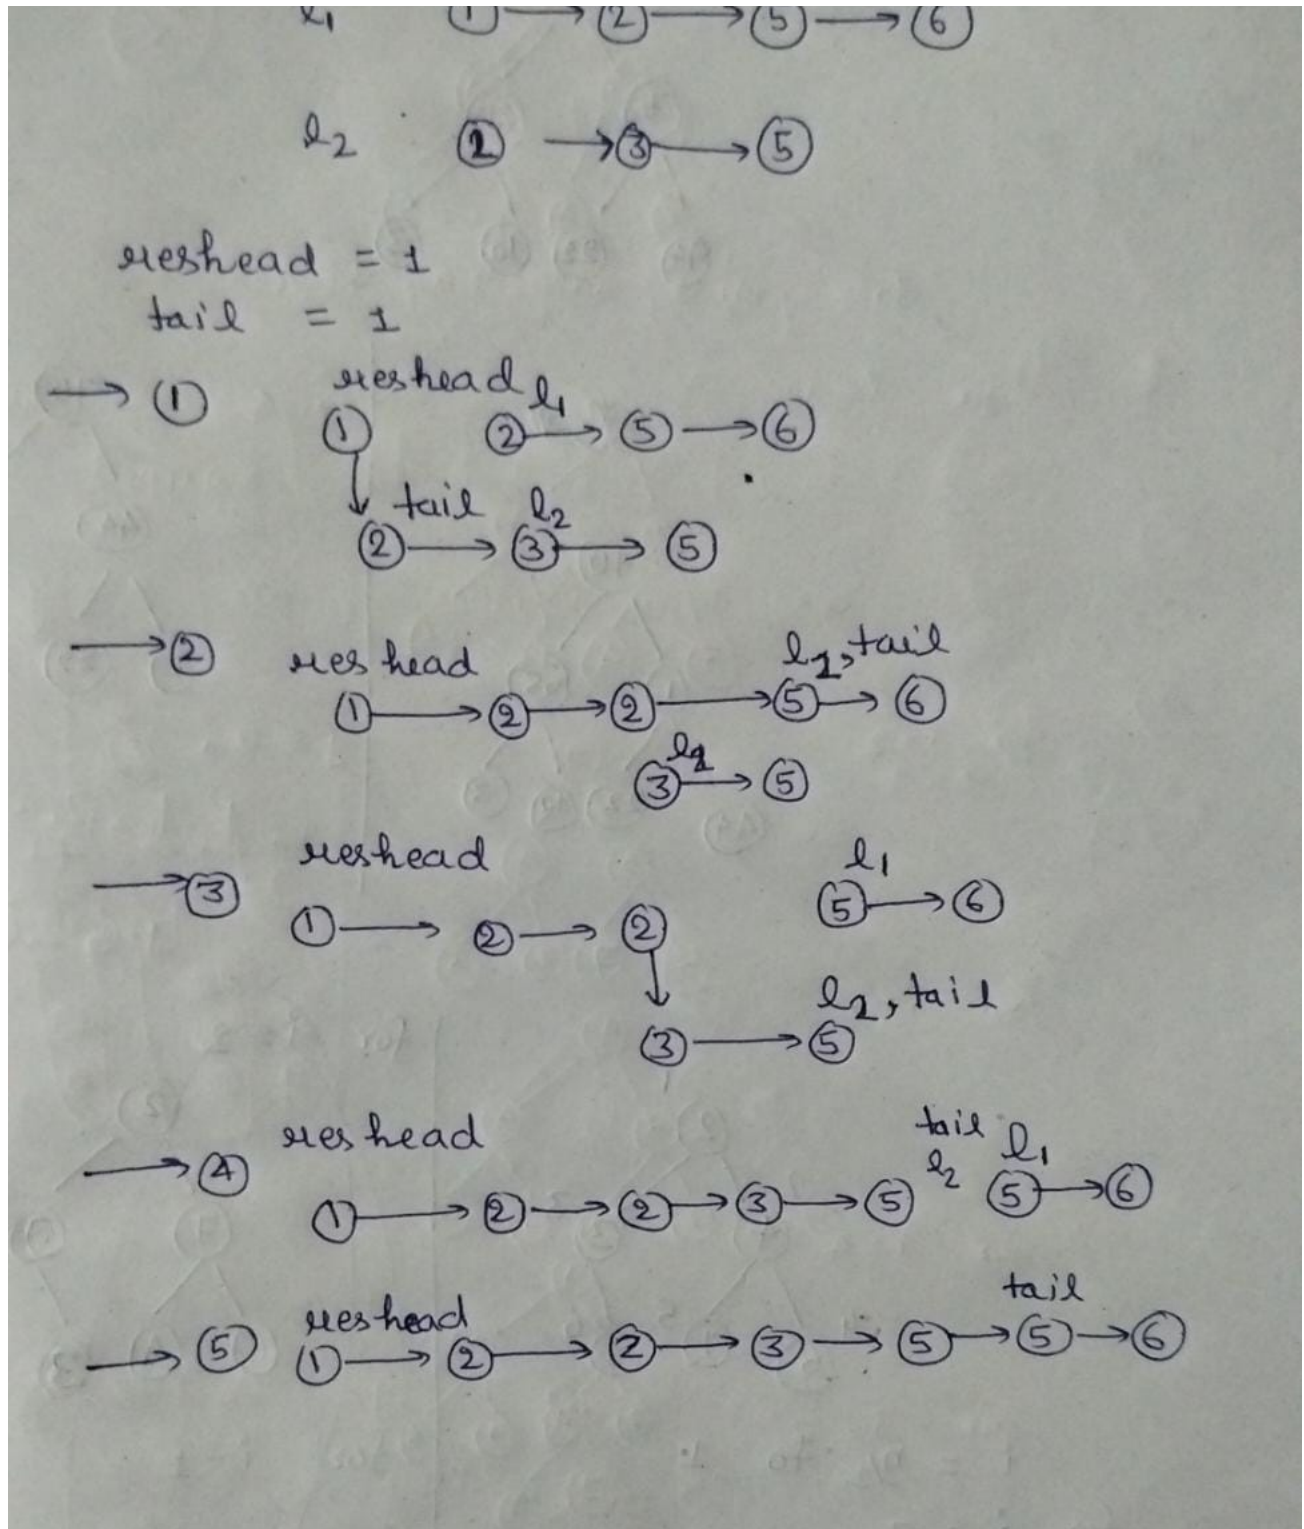 l1 ① → ② → ⑤ → ⑥
l2 ② → ③ → ⑤
reshead = 1
tail = 1
→ ① reshead l1
① ② → ⑤ → ⑥
↓ tail l2
② → ③ → ⑤
→ ② reshead l1, tail
① → ② → ② → ⑤ → ⑥
l2
③ → ⑤
→ ③ reshead l1
① → ② → ② ⑤ → ⑥
↓ l2, tail
③ → ⑤
→ ④ reshead tail l1
l2
① → ② → ② → ③ → ⑤ ⑤ → ⑥
→ ⑤ reshead tail
① → ② → ② → ③ → ⑤ → ⑤ → ⑥